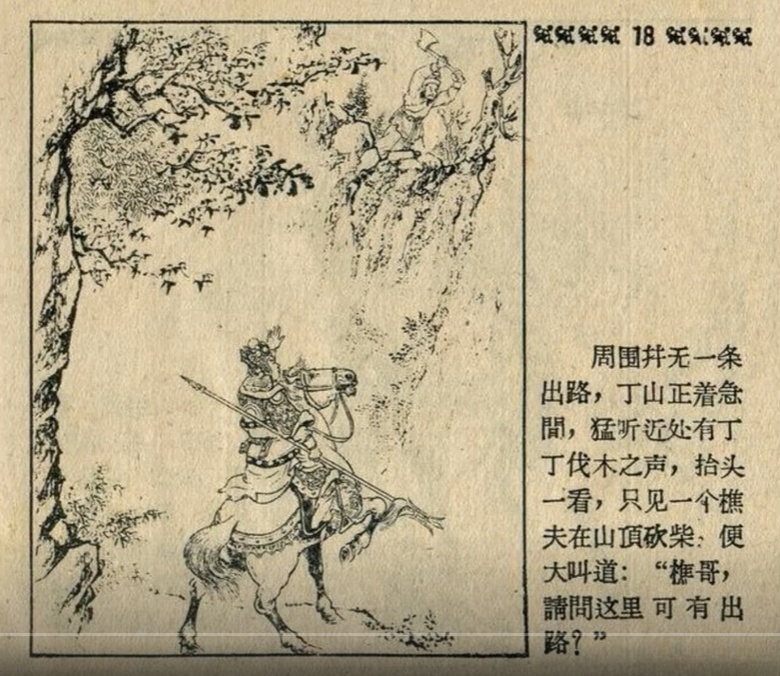 18
周围幷无一条
出路，丁山正着急
間，猛听近处有丁
丁伐木之声，抬头
一看，只见一个樵
夫在山頂砍柴，便
大叫道：“樵哥，
請問这里可有出
路？”